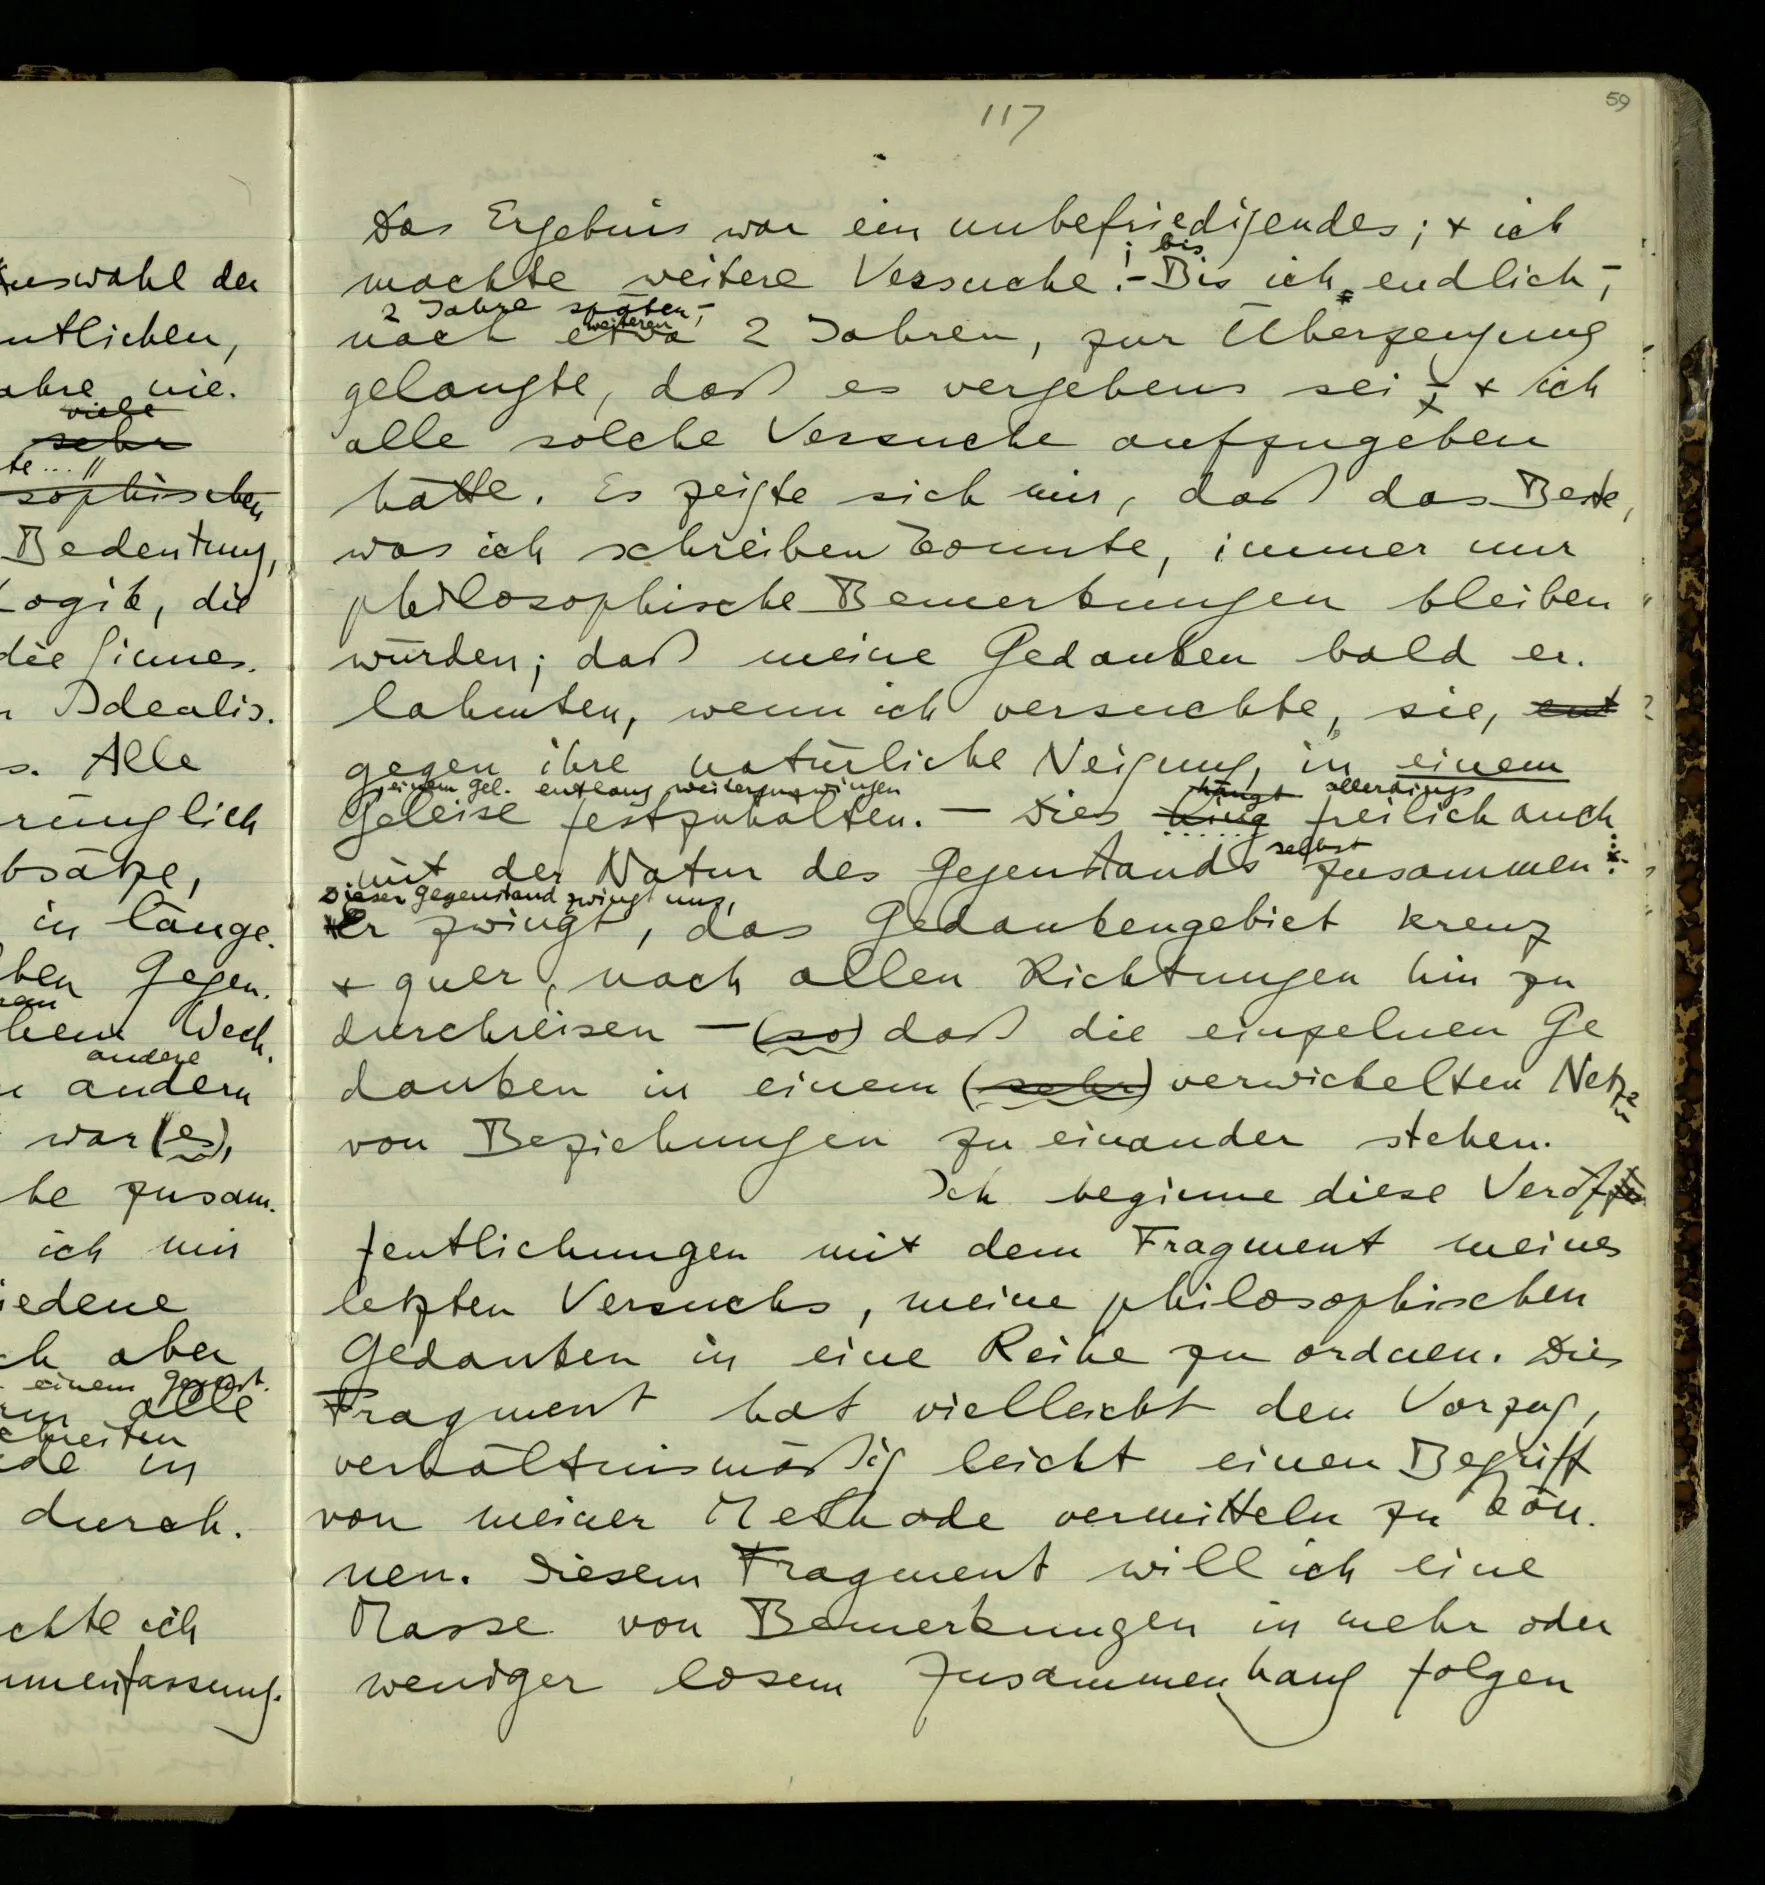 Auswahl der
ntlichen,
ahre nie.
viele
sehr
te ... "
sophischen
Bedeutung,
Logik, die
die Sinnes-
n Idealis-
s. Alle
rünglich
bsätze,
in länge-
ben Gegen-
hem Wech-
andere
n andern
war (es),
he zusam-
ich mir
iedene
ch aber
einem
rm alle
chreiten
ide in
durch.
chte ich
mmenfassung-
59
117
Das Ergebnis war ein unbefriedigendes; + ich
; bis
machte weitere Versuche. – Bis ich, endlich, –
2 Jahre später, –
weiteren
nach etwa 2 Jahren, zur Überzeugung
gelangte, daß es vergebens sei; + ich
alle solche Versuche aufzugeben
hätte. Es zeigte sich mir, daß das Beste,
was ich schreiben konnte, immer nur
philosophische Bemerkungen bleiben
würden; daß meine Gedanken bald er-
lahmten, wenn ich versuchte, sie, ent
gegen ihre natürliche Neigung, in einem
einem Gel. entlang weiterzuzwingen hängt allerdings
Geleise festzuhalten. – Dies hing freilich auch
selbst
mit der Natur des Gegenstands zusammen:
Dieser Gegenstand zwingt uns,
Er zwingt, das Gedankengebiet kreuz
+ quer, nach allen Richtungen hin zu
durchreisen – (so) daß die einzelnen Ge
danken in einem (sehr) verwickelten Netze
von Beziehungen zu einander stehen.
Ich beginne diese Veröf
fentlichungen mit dem Fragment meines
letzten Versuchs, meine philosophischen
Gedanken in eine Reihe zu ordnen. Dies
Fragment hat vielleicht den Vorzug,
verhältnismäßig leicht einen Begriff
von meiner Methode vermitteln zu kön-
nen. Diesem Fragment will ich eine
Masse von Bemerkungen in mehr oder
weniger losem Zusammenhang folgen